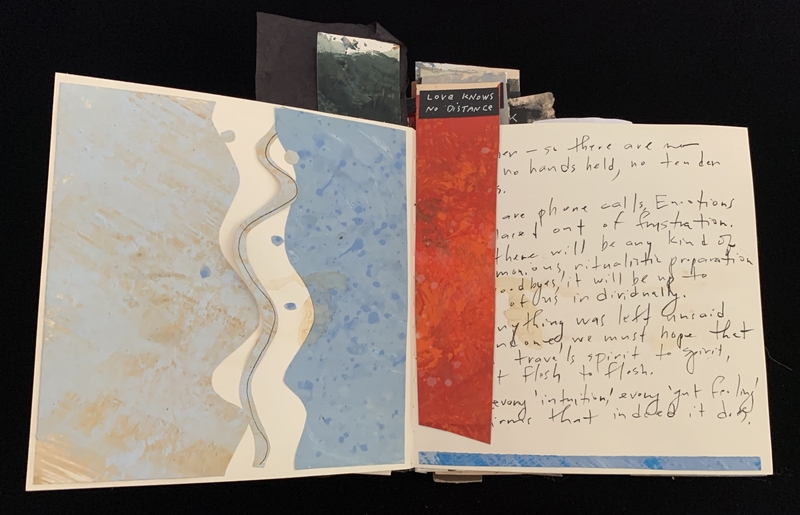 LOVE KNOWS
NO DISTANCE
K
en – so there are no
no hands held, no tenden
s.
are phone calls, Emotions
laced out of frustration.
there will be any kind of
monious, ritualistic preparation
oodbyes, it will be up to
of us individually.
nything was left unsaid
ndone, we must hope that
travells spirit to spirit,
t flesh to flesh.
every 'intuition', every 'gut feeling'
irms that indeed it does.